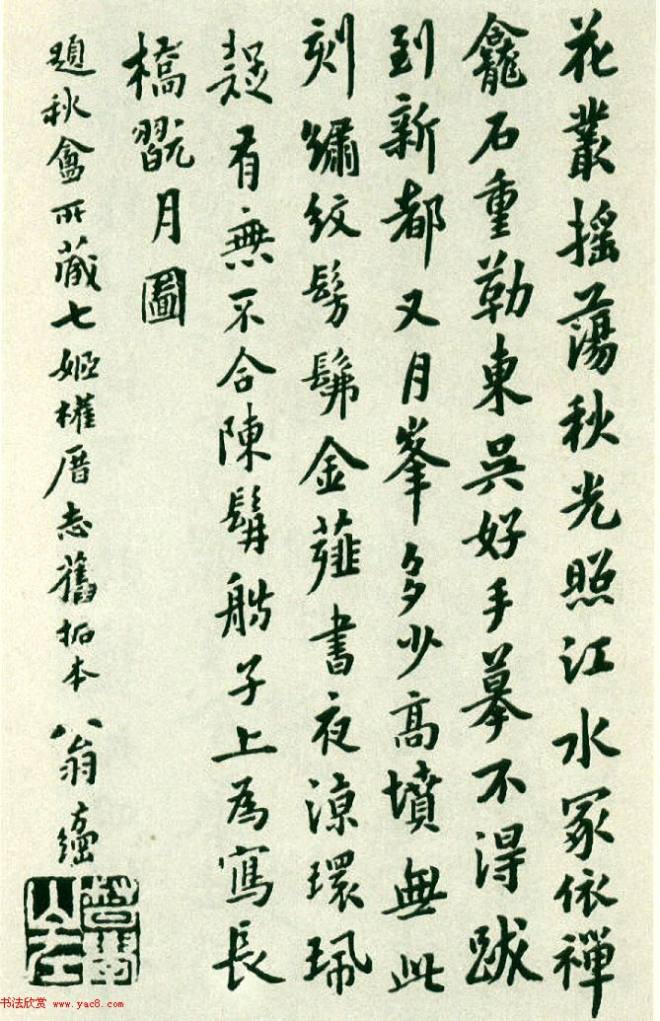 花叢搖蕩秋光照江水冢依禪
龕石重勒東吳好手摹不得跋
到新都又月峯多少高墳無此
刻繡紋髣髴金薤書夜涼環珮
疑有無不合陳髯船子上為寫長
橋翫月圖
題秋盦所藏七姬權厝志舊拓本
翁方綱
书法欣赏 www.yac8.com